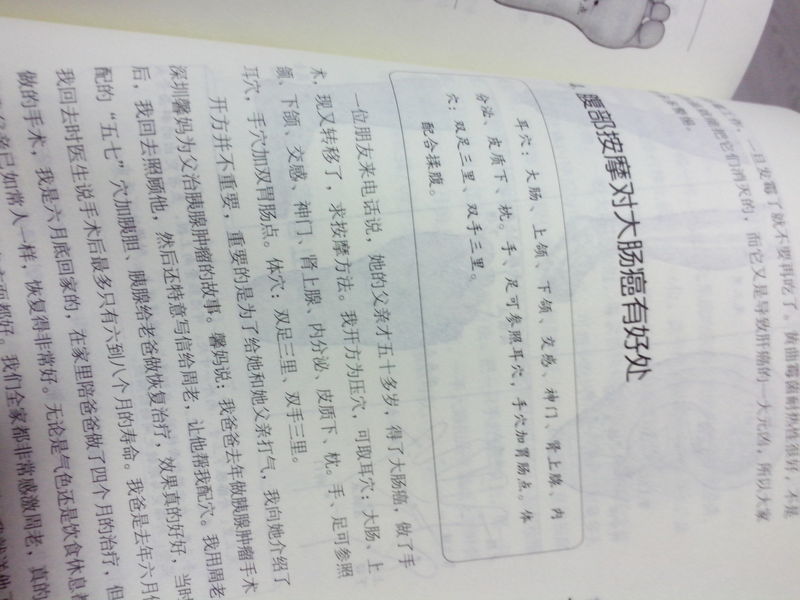 一旦发霉了就不要再吃了。黄曲霉菌耐热性很好，
把它们消灭的，而它又是导致肝癌的一大元凶，所以大家
腹部按摩对大肠癌有好处
耳穴：大肠、上颌、下颌、交感、神门、肾上腺、内
分泌、皮质下、枕。手、足可参照耳穴，手穴加胃肠点。体
穴：双足三里、双手三里。
配合揉腹。
一位朋友来电话说，她的父亲才五十多岁，得了大肠癌，做了手
术，现又转移了，求按摩方法。我开方为压穴，可取耳穴：大肠、上
颌、下颌、交感、神门、肾上腺、内分泌、皮质下、枕。手、足可参照
耳穴，手穴加双胃肠点。体穴：双足三里、双手三里。
开方并不重要，重要的是为了给她和她父亲打气，我向她介绍了
深圳馨妈为父治胰腺肿瘤的故事。馨妈说：我爸爸去年做胰腺肿瘤手术
后，我回去照顾他，然后还特意写信给周老，让他帮我配穴。我用周老
配的“五七”穴加胰胆、胰腺给老爸做恢复治疗，效果真的好好，当时
我回去时医生说手术后最多只有六到八个月的寿命。我爸是去年六月
做的手术，我是六月底回家的，在家里陪爸爸做了四个月的治疗，但
已如常人一样，恢复得非常好。无论是气色还是饮食休息
都好。我们全家都非常感激周老，真的